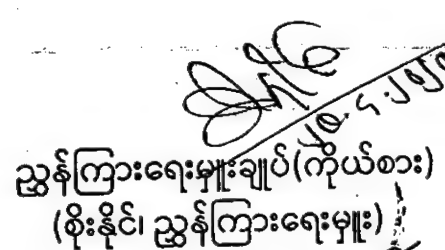 ညွှန်ကြားရေးမှူးချုပ်(ကိုယ်စား)
(စိုးနိုင်၊ ညွှန်ကြားရေးမှူး)